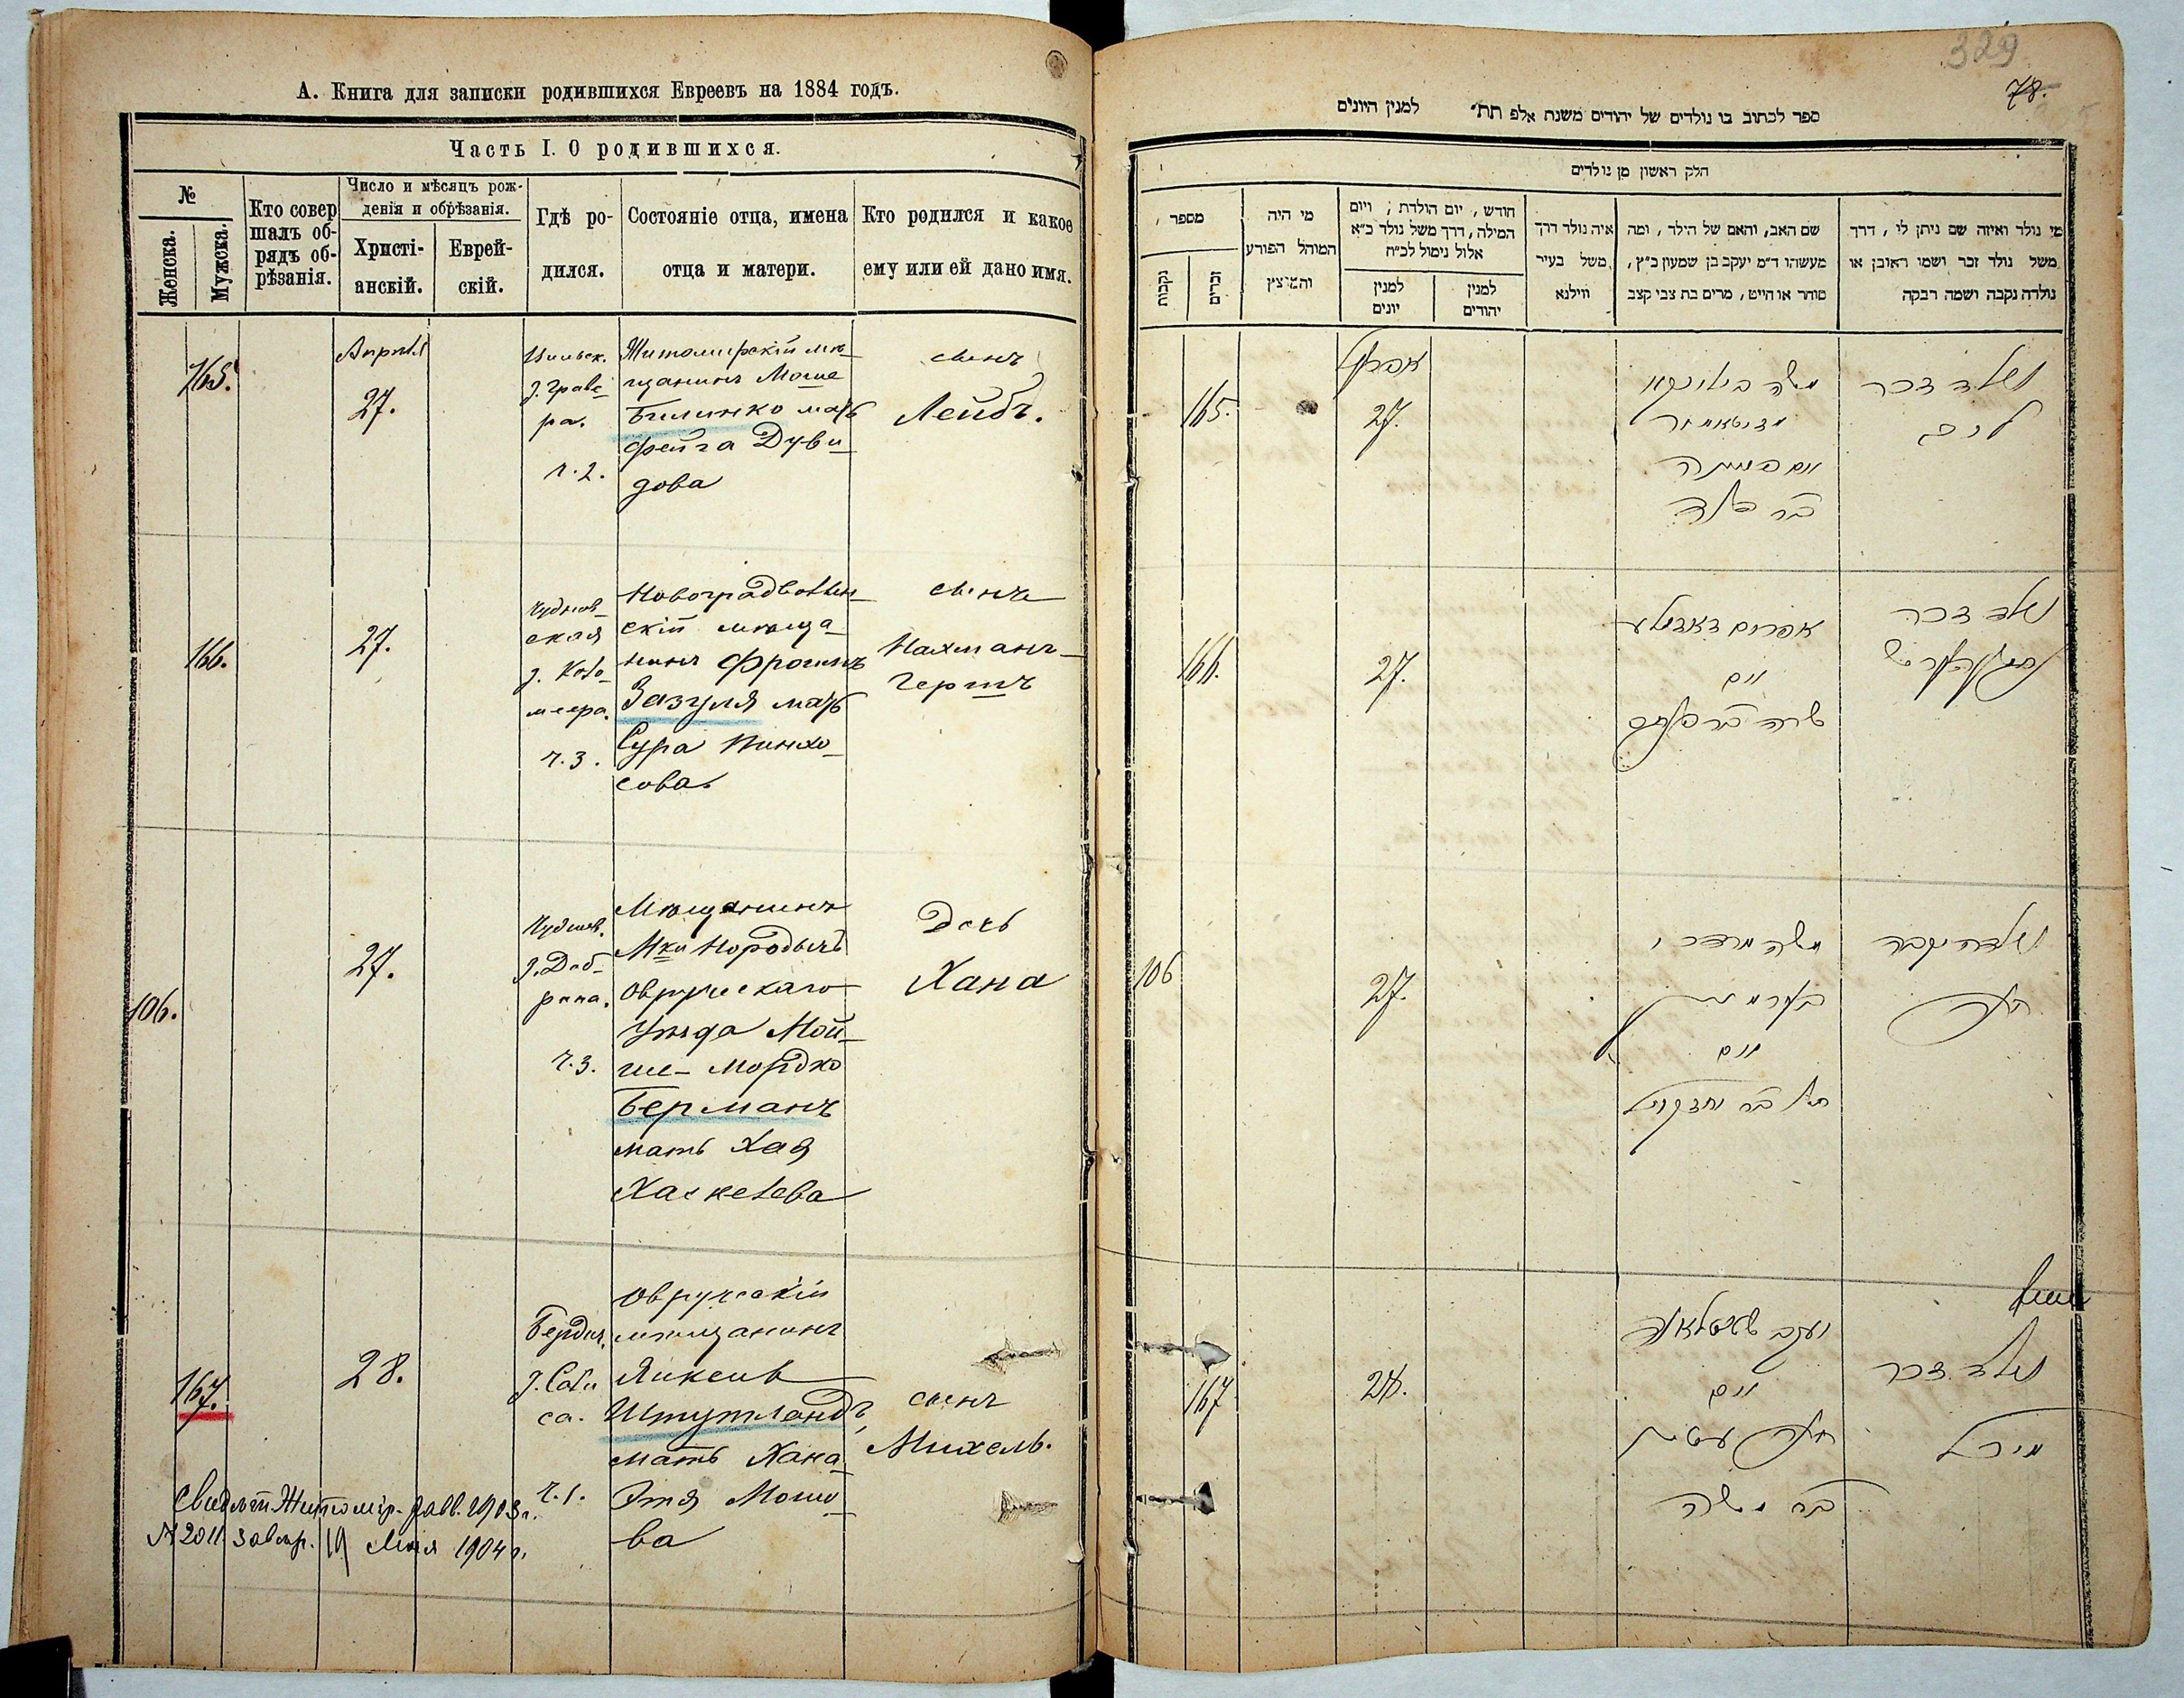 А. Книга для записки родившихся Евреевъ на 1884 годъ.
Часть I. О родившихся.
№
Женска.
Мужска.
Кто совер
шалъ об-
рядъ об-
рѣзанія.
Число и мѣсяцъ рож-
денія и обрѣзанія.
Христі-
анскій.
Еврей-
скій.
Гдѣ ро-
дился.
Состояніе отца, имена
отца и матери.
Кто родился и какое
ему или ей дано имя.
165.
Апрѣля
27.
ч. 2.
Житомирскій мѣ-
щанинъ Моше
Билинко мать
Фейга Дуви
дова
сынъ
Лейбъ.
166.
27.
Чуднов-
ская
ч. 3.
Новоградволын-
скій мѣща-
нинъ Фроимъ
Зазуля мать
Сура Пинхо-
сова.
сынъ
Нахманъ-
Гершъ
106.
27.
Чуднов.
ч. 3.
Мѣщанинъ
Мки Нородычъ
Овручскаго
Уѣзда Мой-
ше-Мордко
Берманъ
мать Хая
Хаскелева
Дочь
Хана
167.
28.
Бердич.
ч. 1.
Овручскій
мѣщанинъ
Янкель
Штутландъ,
мать Хана
Этя Мошо-
ва
сынъ
Михель.
Свидѣт. Житомір. равв. 1903 г.
№ 2011 завѣр. 19 1904 г.
329
78.
ספר לכתוב בו נולדים של יהודים משנת אלפ תת״ למנין היונים
חלק ראשון מן נולדים
מספר
נקבות
זכרים
מי היה
המוהל הפורע
והמוצץ
חודש, יום הולדת; ויום
המילה, דרך משל נולד כ״א
אלול נימול לכ״ח
למנין
יונים
למנין
יהודים
איה נולד דרך
משל בעיר
ווילנא
שם האב, והאם של הילד, ומה
מעשהו ד״מ יעקב בן שמעון כ״ץ,
סוחר או חייט, מרים בת צבי קצב
מי נולד ואיזה שם ניתן לו, דרך
משל נולד זכר ושמו ראובן או
נולדה נקבה ושמה רבקה
165.
אפריל
27.
משה בילינקא
בר דוד
נולד זכר
ליב
166.
27.
אפרים זאזולע
ואם
שרה בר פנחס
נולד זכר
106
27.
משה מרדכי
בערמאן
ואם
חי' בר יחזקאל
נולדה נקבה
חנה
167
28.
יעקב שטוטלאנד
ואם
חנה עטיא
בר משה
נולד זכר
מיכל